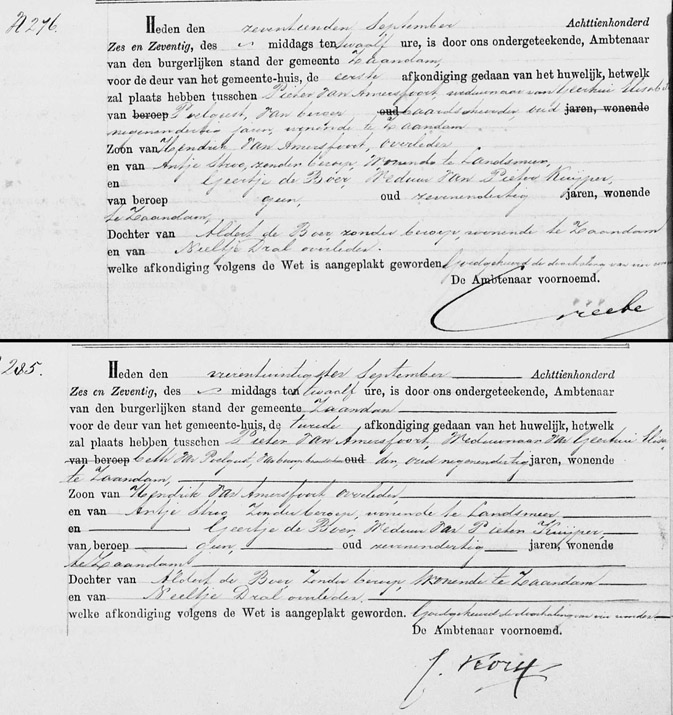 N 276.
Heden den zeventeenden September Achttienhonderd
Zes en Zeventig, des middags ten twaalf ure, is door ons ondergeteekende, Ambtenaar
van den burgerlijken stand der gemeente Zaandam,
voor de deur van het gemeente-huis, de eerste afkondiging gedaan van het huwelijk, hetwelk
zal plaats hebben tusschen Pieter van Amersfoort, weduwnaar van Geertrui Elisabeth
van beroep Poelgeest, van beroep oud oud jaren, wonende
negenendertig jaren, wonende te Zaandam
Zoon van Hendrik van Amersfoort, overleden
en van Antje Smo, zonder beroep, wonende te Landsmeer,
en Geertje de Boer, Weduwe van Pieter Kuijper,
van beroep geen, oud zevenendertig jaren, wonende
te Zaandam,
Dochter van Aldert de Boer zonder beroep, wonende te Zaandam
en van Neeltje Dral overleden.
welke afkondiging volgens de Wet is aangeplakt geworden. Goedgekeurd de doorhaling van
De Ambtenaar voornoemd.
285.
Heden den vierentwintigsten September Achttienhonderd
Zes en Zeventig, des middags ten twaalf ure, is door ons ondergeteekende, Ambtenaar
van den burgerlijken stand der gemeente Zaandam
voor de deur van het gemeente-huis, de tweede afkondiging gedaan van het huwelijk, hetwelk
zal plaats hebben tusschen Pieter van Amersfoort, Weduwnaar van Geertrui Elisa-
van beroep beth van Poelgeest, van beroep oud der, oud negenendertig jaren, wonende
te Zaandam,
Zoon van Hendrik van Amersfoort overleden
en van Antje Smo zonder beroep, wonende te Landsmeer
en Geertje de Boer, Weduwe van Pieter Kuijper,
van beroep geen, oud zevenendertig jaren, wonende
te Zaandam
Dochter van Aldert de Boer, zonder beroep, wonende te Zaandam
en van Neeltje Dral overleden.
welke afkondiging volgens de Wet is aangeplakt geworden. Goedgekeurd de doorhaling van vier woorden
De Ambtenaar voornoemd.